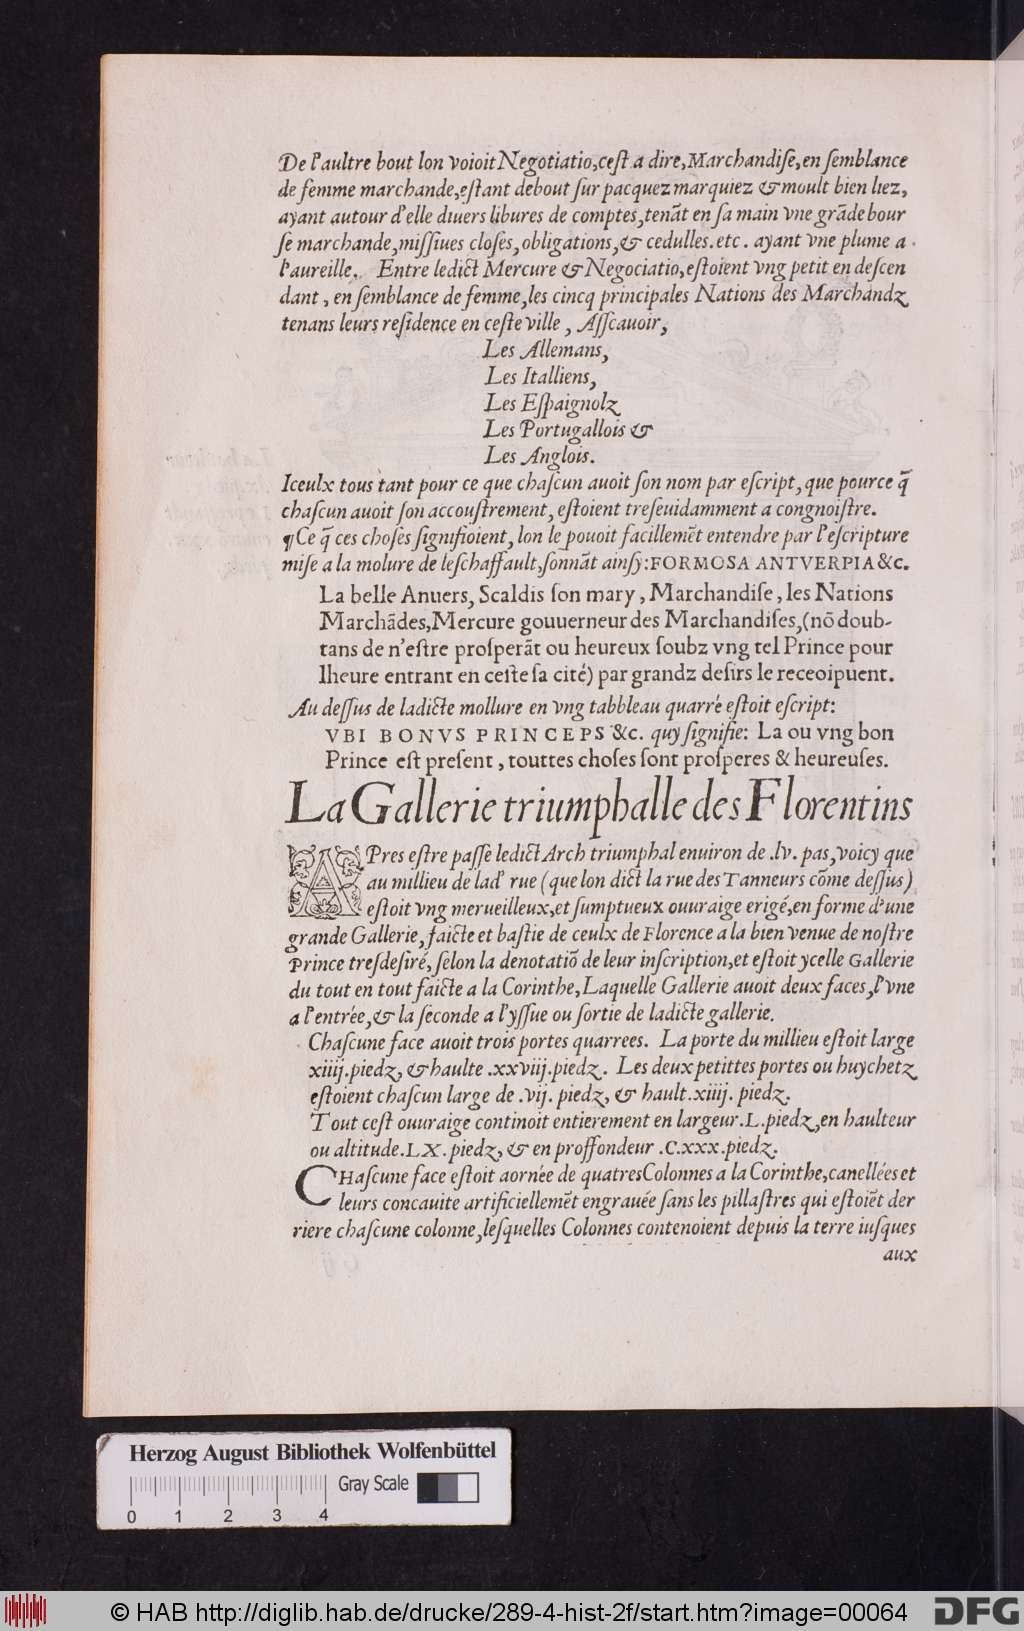 De l'aultre bout lon voioit Negotiatio, cest a dire, Marchandise, en semblance
de femme marchande, estant debout sur pacquez marquiez & moult bien liez,
ayant autour d'elle diuers libures de comptes, tenãt en sa main vne grãde bour
se marchande, missiues closes, obligations, & cedulles. etc. ayant vne plume a
l'aureille. Entre ledict Mercure & Negociatio, estoient vng petit en descen
dant, en semblance de femme, les cincq principales Nations des Marchandz
tenans leurs residence en ceste ville, Asscauoir,
Les Allemans,
Les Italliens,
Les Espaignolz
Les Portugallois &
Les Anglois.
Iceulx tous tant pour ce que chascun auoit son nom par escript, que pource q̃
chascun auoit son accoustrement, estoient treseuidamment a congnoistre.
¶ Ce q̃ ces choses signifioient, lon le pouoit facillemẽt entendre par l'escripture
mise a la molure de leschaffault, sonnãt ainsy: FORMOSA ANTVERPIA &c.
La belle Anuers, Scaldis son mary, Marchandise, les Nations
Marchãdes, Mercure gouuerneur des Marchandises, (nõ doub-
tans de n'estre prosperãt ou heureux soubz vng tel Prince pour
lheure entrant en ceste sa cité) par grandz desirs le receoipuent.
Au dessus de ladicte mollure en vng tabbleau quarré estoit escript:
VBI BONVS PRINCEPS &c. quy signifie: La ou vng bon
Prince est present, touttes choses sont prosperes & heureuses.
La Gallerie triumphalle des Florentins
APres estre passe ledict Arch triumphal enuiron de .lv. pas, voicy que
au millieu de lad' rue (que lon dict la rue des Tanneurs cõme dessus)
estoit vng merueilleux, et sumptueux ouuraige erigé, en forme d'une
grande Gallerie, faicte et bastie de ceulx de Florence a la bien venue de nostre
Prince tresdesiré, selon la denotatiõ de leur inscription, et estoit ycelle Gallerie
du tout en tout faicte a la Corinthe, Laquelle Gallerie auoit deux faces, l'vne
a l'entrée, & la seconde a l'yssue ou sortie de ladicte gallerie.
Chascune face auoit trois portes quarrees. La porte du millieu estoit large
xiiij. piedz, & haulte .xxviij. piedz. Les deux petittes portes ou huychetz
estoient chascun large de .vij. piedz, & hault .xiiij. piedz.
Tout cest ouuraige continoit entierement en largeur .L. piedz, en haulteur
ou altitude .LX. piedz, & en proffondeur .C.xxx. piedz.
CHascune face estoit aornée de quatres Colonnes a la Corinthe, canellées et
leurs concauite artificiellemẽt engrauée sans les pillastres qui estoiẽt der
riere chascune colonne, lesquelles Colonnes contenoient depuis la terre iusques
aux
Herzog August Bibliothek Wolfenbüttel
Gray Scale
0 1 2 3 4
© HAB http://diglib.hab.de/drucke/289-4-hist-2f/start.htm?image=00064
DFG